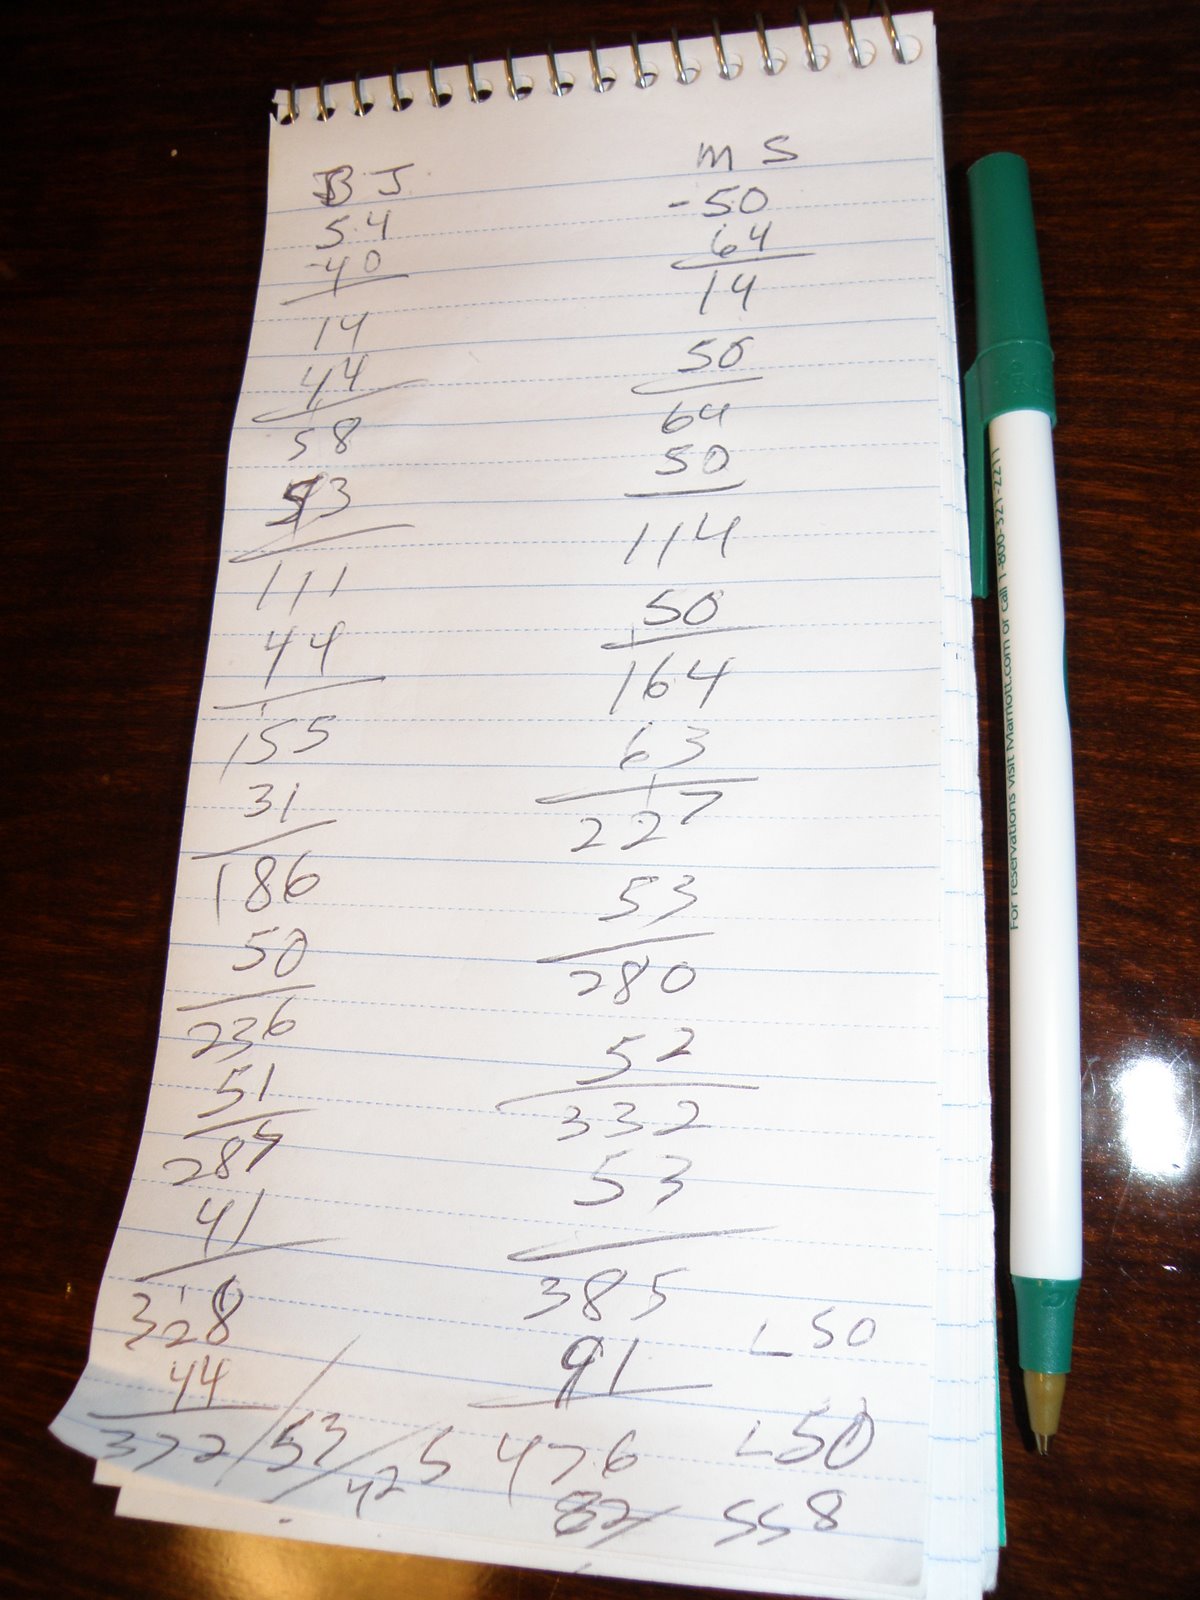 BJ
54
-40
14
44
58
53
111
44
155
31
186
50
236
51
287
41
328
44
372 / 53 / 425
MS
-50
64
14
50
64
50
114
50
164
63
227
53
280
52
332
53
385
91 L 50
476 L 50
82 / 558
For reservations visit Marriott.com or call 1-800-321-2211